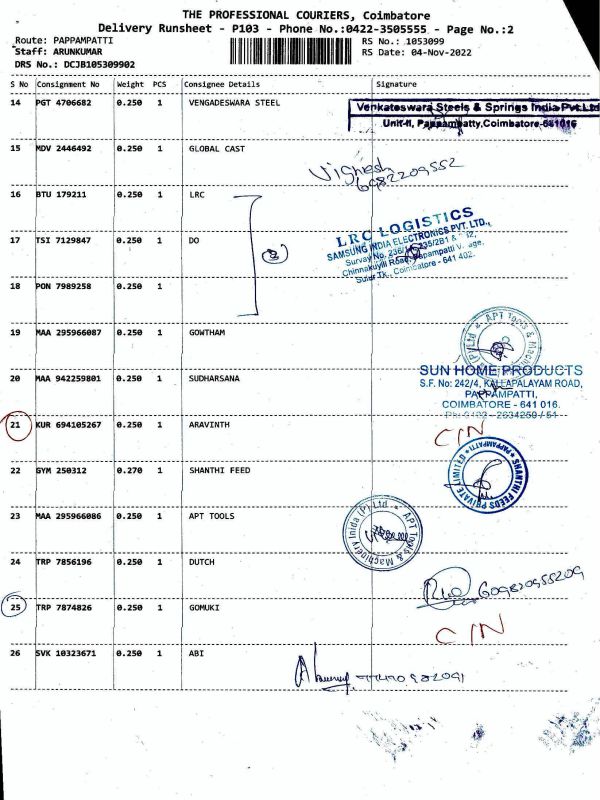 THE PROFESSIONAL COURIERS, Coimbatore
Delivery Runsheet - P103 - Phone No.:0422-3505555 - Page No.:2
Route: PAPPAMPATTI
RS No.: 1053099
Staff: ARUNKUMAR
RS Date: 04-Nov-2022
DRS No.: DCJB105309902
S No Consignment No Weight PCS Consignee Details Signature
14 PGT 4706682 0.250 1 VENGADESWARA STEEL
Venkateswara Steels & Springs India Pvt.Ltd
Unit-II, Pappampatty,Coimbatore-641016
15 MDV 2446492 0.250 1 GLOBAL CAST
Vighesh
6982209552
16 BTU 179211 0.250 1 LRC
17 TSI 7129847 0.250 1 DO
3
LRC LOGISTICS
SAMSUNG INDIA ELECTRONICS PVT. LTD.,
Survay No. 235/2B1 &
Chinnakuyili Road, Papampatti
Sulur Tk., Coimbatore - 641 402.
18 PON 7989258 0.250 1
19 MAA 295966087 0.250 1 GOWTHAM
APT Tools & Machinery (P) Ltd
20 MAA 942259801 0.250 1 SUDHARSANA
SUN HOME PRODUCTS
S.F. No: 242/4, KALLAPALAYAM ROAD,
PAPPAMPATTI,
COIMBATORE - 641 016.
21 KUR 694105267 0.250 1 ARAVINTH
C/N
22 GYM 250312 0.270 1 SHANTHI FEED
SHANTHI FEEDS PRIVATE LIMITED * PAPPAMPATTI *
23 MAA 295966086 0.250 1 APT TOOLS
APT Tools & Machinery Inida (P) Ltd
24 TRP 7856196 0.250 1 DUTCH
25 TRP 7874826 0.250 1 GOMUKI
C/N
26 SVK 10323671 0.250 1 ABI